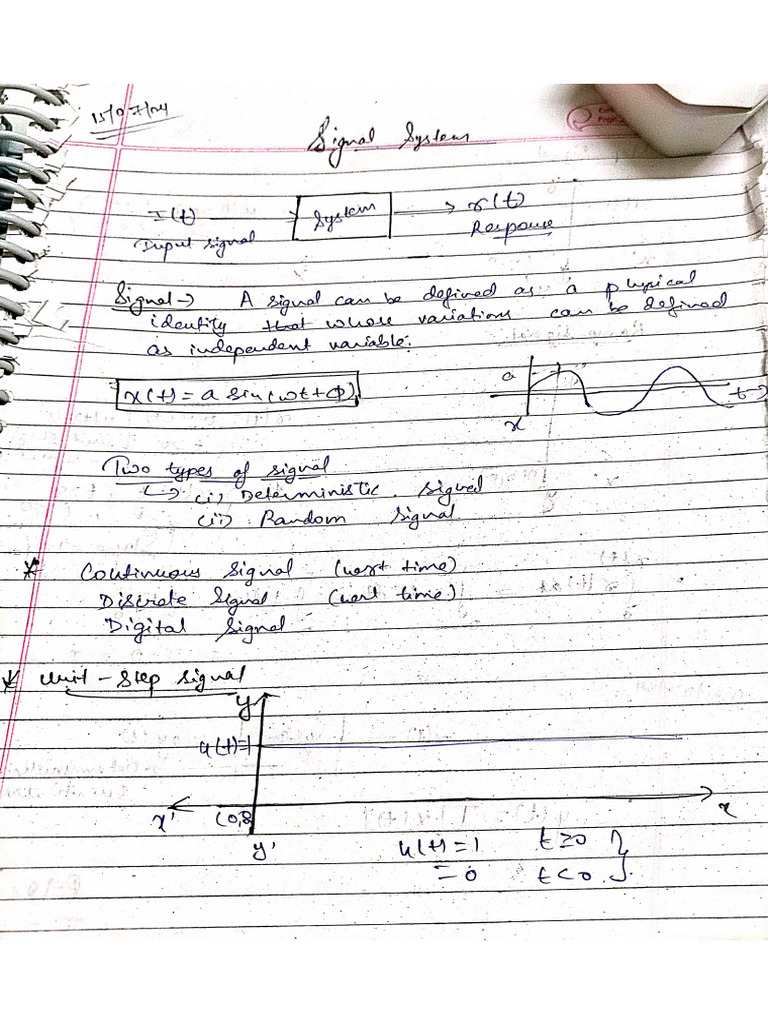 15/07/24
Signal System
I(t) → System → r(t)
Input signal Response
Signal → A signal can be defined as a physical
identity that whose variations can be defined
as independent variable.
x(t) = a sin(ωt+Φ)
a
t→
x
Two types of signal
↳ (i) Deterministic signal
(ii) Random Signal
* Continuous Signal (wrt time)
Discrete Signal (wrt time)
Digital Signal
* Unit - Step signal
y
u(t)=1
x' (0,0) x
y'
u(t) = 1 t≥0 }
= 0 t<0. }